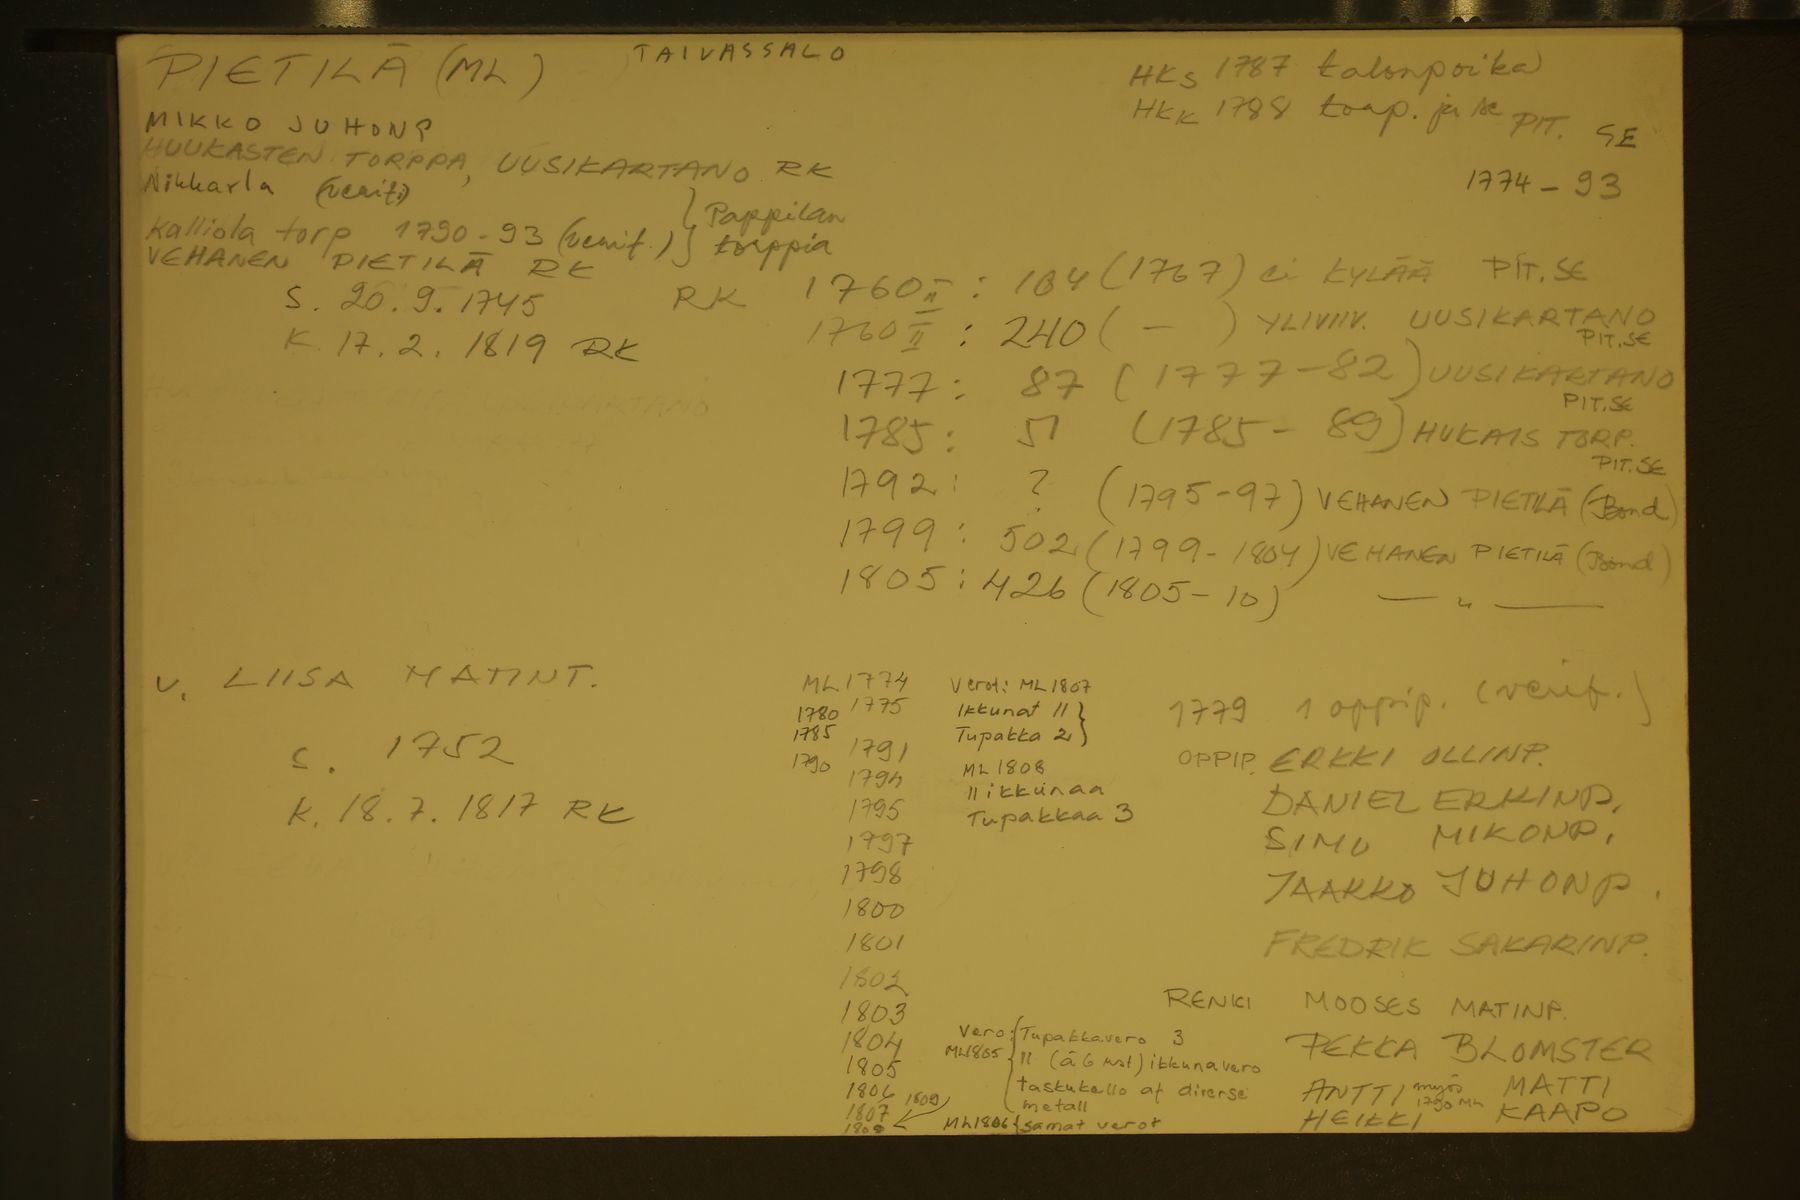 PIETILÄ (ML)
TAIVASSALO
MIKKO JUHONP
HUUKASTEN TORPPA, UUSIKARTANO RK
Nikkarla (verif.)
Kalliola torp 1790-93 (verif.) } Pappilan torppia
VEHANEN PIETILÄ RK
S. 20.9.1745 RK
K. 17.2.1819 RK
HKS 1787 talonpoika
HKK 1788 torp. ja se PIT. SE
1774-93
1760 II : 184 (1767) ei KYLÄÄ PIT.SE
1760 II : 240 ( - ) YLIVIIV. UUSIKARTANO PIT.SE
1777 : 87 (1777-82) UUSIKARTANO PIT.SE
1785 : 51 (1785-89) HUKAIS TORP. PIT.SE
1792 : ? (1795-97) VEHANEN PIETILÄ (Bond)
1799 : 502 (1799-1804) VEHANEN PIETILÄ (Bond)
1805 : 426 (1805-10) — " —
V. LIISA MATINT.
S. 1752
K. 18.7.1817 RK
ML 1774
1780 1775
1785
1790 1791
1794
1795
1797
1798
1800
1801
1802
1803
1804
1805
1806
1807 1809
1808
Verot: ML 1807
Ikkunat 11 }
Tupakka 2 }
ML 1808
11 ikkunaa
Tupakkaa 3
Vero: { Tupakkavero 3
ML1805 11 (à 6 kst) ikkunavero
taskukello af diverse
metall
ML1806 { samat verot
1779 1 oppip. (verif.)
OPPIP. ERKKI OLLINP.
DANIEL ERKINP.
SIMO MIKONP.
JAAKKO JUHONP.
FREDRIK SAKARINP.
RENKI MOOSES MATINP.
PEKKA BLOMSTER
ANTTI myös 1790 ML MATTI
HEIKKI KAAPO